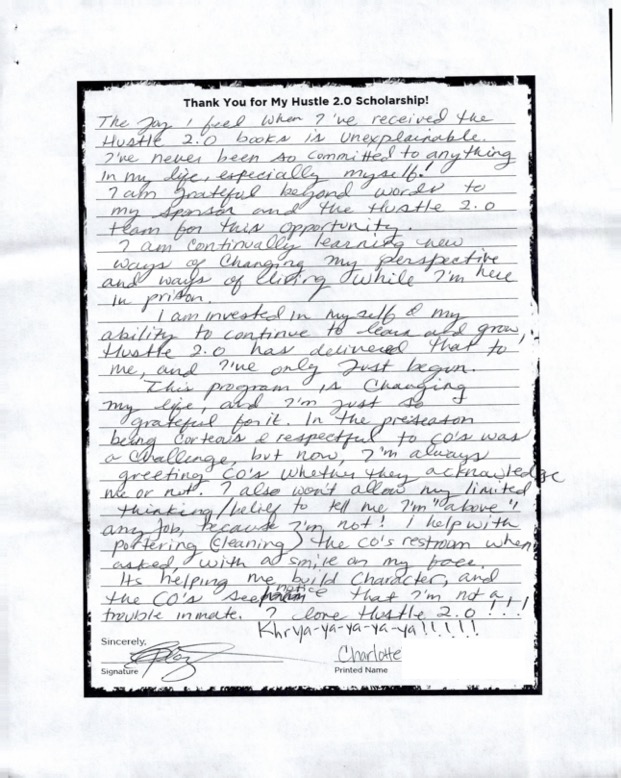 Thank You for My Hustle 2.0 Scholarship!
The Joy I feel when I've received the
Hustle 2.0 books is unexplainable.
I've never been so committed to anything
in my life, especially myself!
I am grateful beyond words to
my sponsor and the Hustle 2.0
team for this opportunity.
I am continually learning new
ways of Changing my perspective
and ways of living while I'm here
in prison.
I am invested in myself & my
ability to continue to learn and grow,
Hustle 2.0 has delivered that to
me, and I've only Just begun.
This program is Changing
my life, and I'm just so
grateful for it. In the preseason
being Corteous & respectful to CO's was
a Challenge, but now, I'm always
greeting CO's whether they acknowledge
me or not. I also won't allow my limited
thinking/belief to tell me I'm "above"
any job, because I'm not! I help with
portering (Cleaning) the CO's restroom when
asked, with a smile on my face.
Its helping me build Character, and
the CO's notice that I'm not a
trouble inmate. I love Hustle 2.0!!!
Khrya-ya-ya-ya-ya!!!!!
Sincerely,
Charlotte
Signature Printed Name